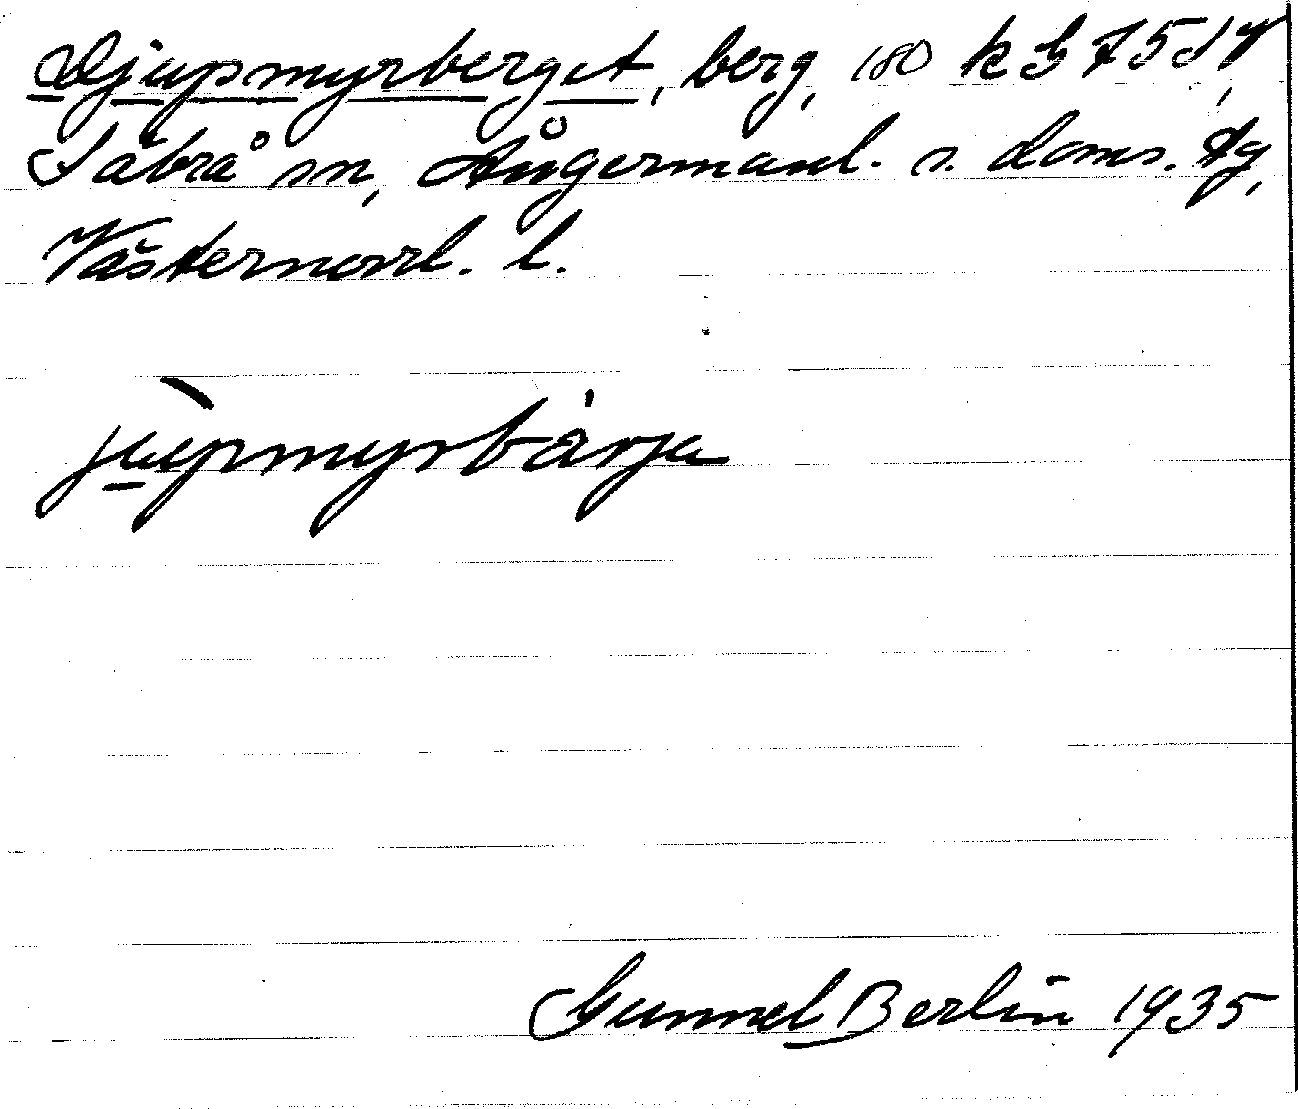 Djupmyrberget, berg, 180 k b
Säbrå sn, Ångermanl. s. doms. tg,
Västernorrl. l.
jupmyrbärja
Gunnel Berlin 1935